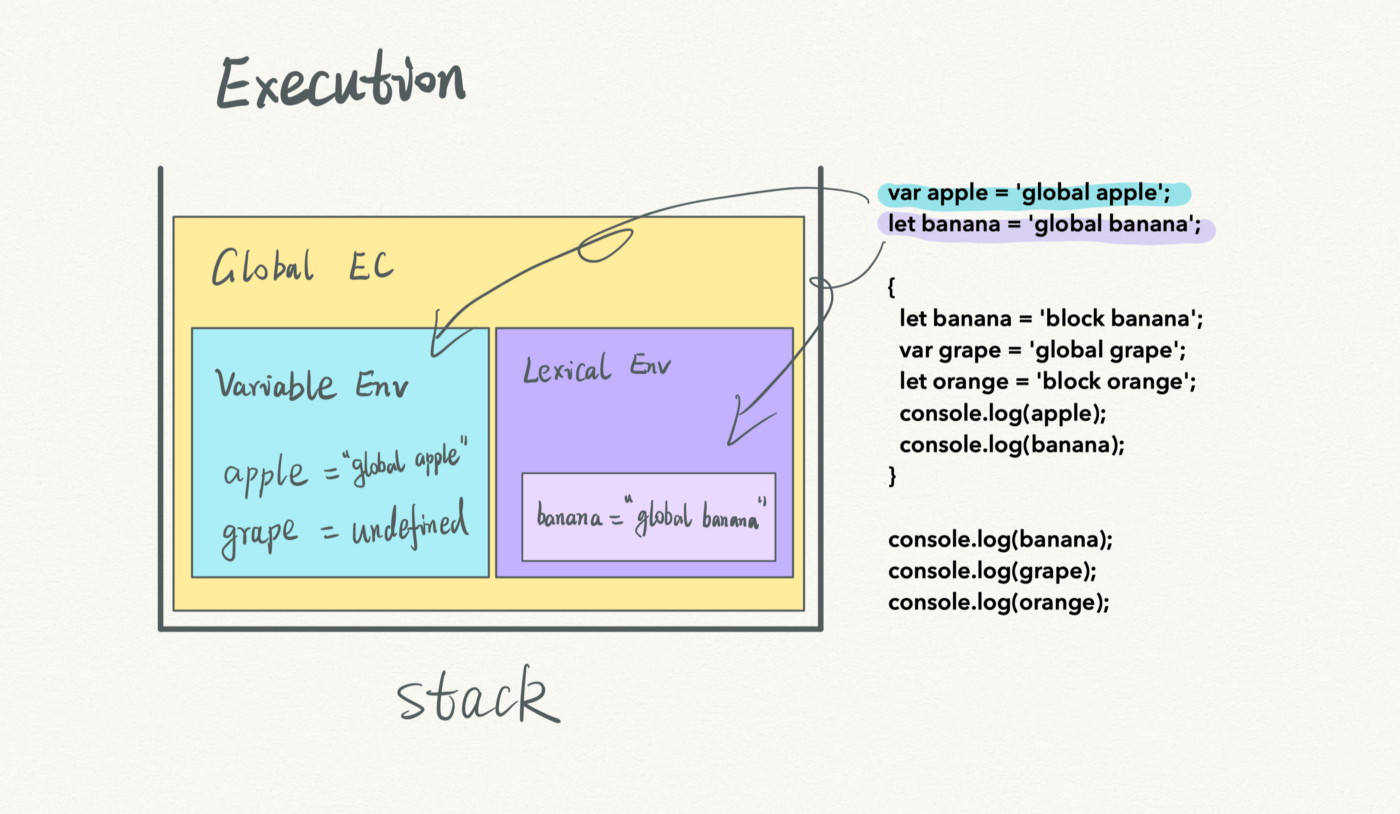 Execution
Global EC
Variable Env
apple = "global apple"
grape = undefined
Lexical Env
banana = "global banana"
stack
var apple = 'global apple';
let banana = 'global banana';
{
let banana = 'block banana';
var grape = 'global grape';
let orange = 'block orange';
console.log(apple);
console.log(banana);
}
console.log(banana);
console.log(grape);
console.log(orange);